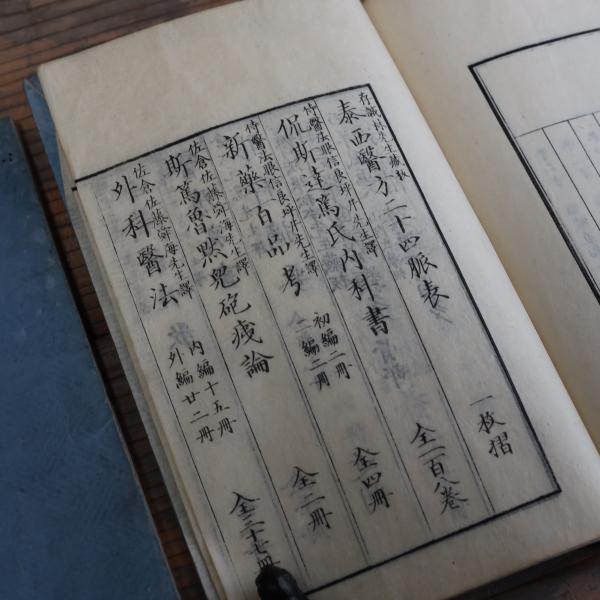 存誠林先生
泰西醫方二十四脈表 一枚摺
侍醫法眼信良坪井先生譯
侃斯達篤氏内科書 全一百八巻
侍醫法眼信良坪井先生譯
新藥百品考 初編二冊 二編二冊 全四冊
佐倉佐藤舜海先生譯
斯篤魯黙児砲痍論 全二冊
佐倉佐藤舜海先生譯
外科醫法 内編十五冊 外編廿二冊 全三十七冊